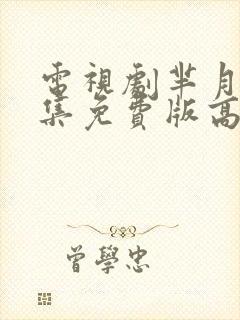 電視劇芈月
集免費版高
曾學忠